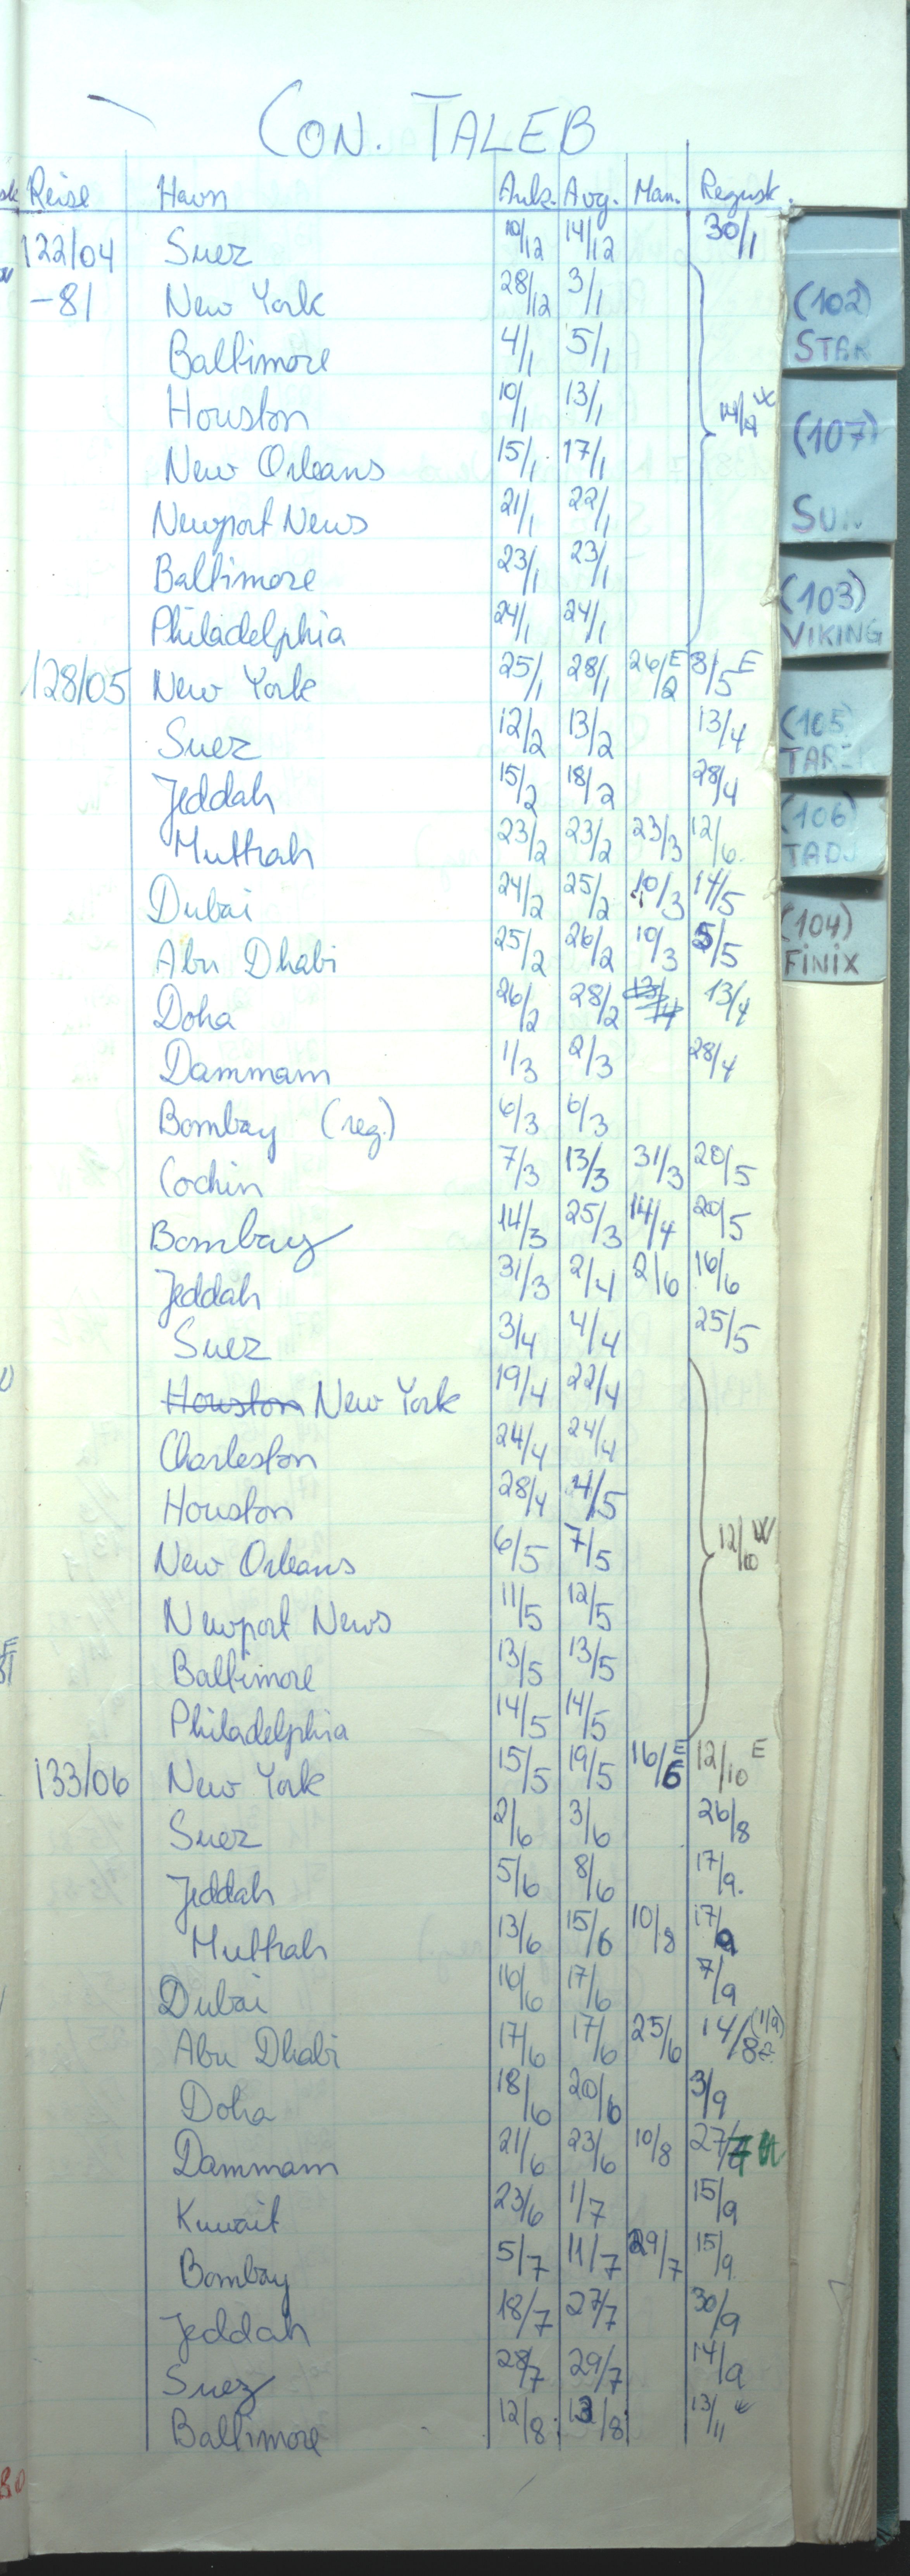 CON. TALEB
Reise Havn Ank. Avg. Man. Regnsk.
122/04 Suez 10/12 14/12 30/1
-81 New York 28/12 3/1
Baltimore 4/1 5/1
Houston 10/1 13/1
New Orleans 15/1 17/1
Newport News 21/1 22/1
Baltimore 23/1 23/1
Philadelphia 24/1 24/1
128/05 New York 25/1 28/1 26/2 E 8/5 E
Suez 12/2 13/2 13/4
Jeddah 15/2 18/2 28/4
Muttrah 23/2 23/2 23/3 12/6
Dubai 24/2 25/2 10/3 14/5
Abu Dhabi 25/2 26/2 10/3 5/5
Doha 26/2 28/2 13/4 13/4
Dammam 1/3 2/3 28/4
Bombay (reg.) 6/3 6/3
Cochin 7/3 13/3 31/3 20/5
Bombay 14/3 25/3 14/4 20/5
Jeddah 31/3 2/4 2/6 16/6
Suez 3/4 4/4 25/5
Houston New York 19/4 22/4
Charleston 24/4 24/4
Houston 28/4 4/5
New Orleans 6/5 7/5 12/10
Newport News 11/5 12/5
Baltimore 13/5 13/5
Philadelphia 14/5 14/5
133/06 New York 15/5 19/5 16/6 E 12/10 E
Suez 2/6 3/6 26/8
Jeddah 5/6 8/6 17/9.
Muttrah 13/6 15/6 10/8 17/9
Dubai 16/6 17/6 7/9
Abu Dhabi 17/6 17/6 25/6 14/8
Doha 18/6 20/6 3/9
Dammam 21/6 23/6 10/8 27/
Kuwait 23/6 1/7 15/9
Bombay 5/7 11/7 29/7 15/9
Jeddah 18/7 27/7 30/9
Suez 28/7 29/7 14/9
Baltimore 12/8 13/8 13/11
(102)
STAR
(107)
SUN
(103)
VIKING
(105)
TAREK
(106)
TADJ
(104)
FINIX